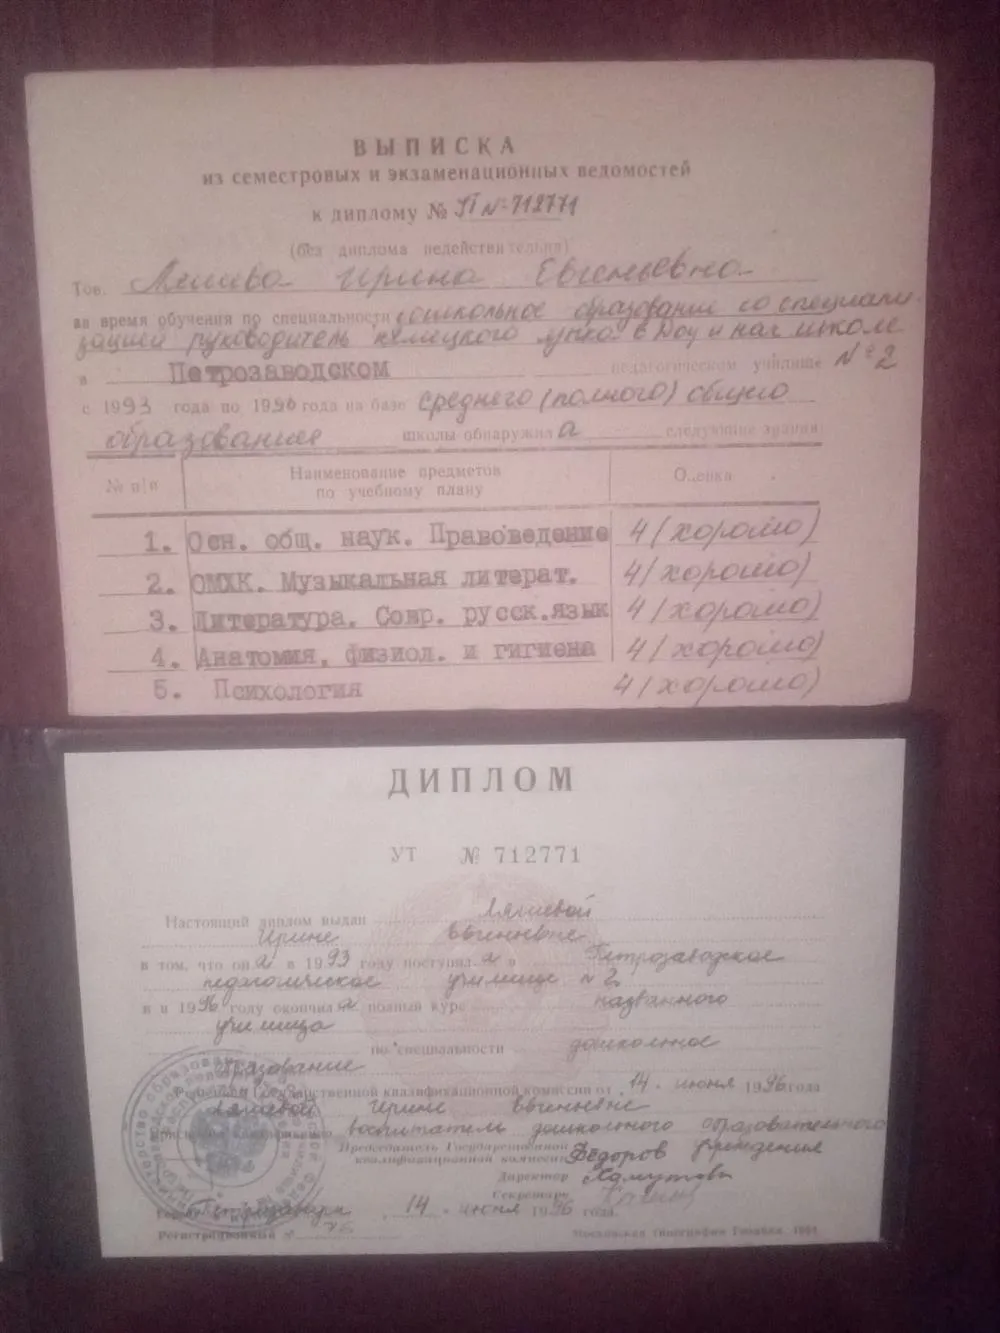 ВЫПИСКА
из семестровых и экзаменационных ведомостей
к диплому № УТ № 712771
(без диплома недействительна)
Тов. Ляшева Ирина Евгеньевна
за время обучения по специальности дошкольное образование со специали
зацией руководитель немецкого языка в ДОУ и нач школе
в Петрозаводском педагогическом училище № 2
с 1993 года по 1996 года на базе среднего (полного) общего
образования школы обнаружила следующие знания:
№ п/п Наименование предметов по учебному плану Оценка
1. Осн. общ. наук. Правоведение 4 (хорошо)
2. ОМХК. Музыкальная литерат. 4 (хорошо)
3. Литература. Совр. русск.язык 4 (хорошо)
4. Анатомия, физиол. и гигиена 4 (хорошо)
5. Психология 4 (хорошо)
ДИПЛОМ
УТ № 712771
Настоящий диплом выдан Ляшевой
Ирине Евгеньевне
в том, что она в 1993 году поступила в Петрозаводское
педагогическое училище № 2
и в 1996 году окончила полный курс названного
училища
по специальности дошкольное
образование
Решением Государственной квалификационной комиссии от 14 июня 1996 года
Ляшевой Ирине Евгеньевне
присвоена квалификация воспитатель дошкольного образовательного
учреждения
Председатель Государственной
квалификационной комиссии Фёдоров
Директор
Секретарь
Город Петрозаводск 14 июня 1996 года
Регистрационный №
Московская типография Гознака.